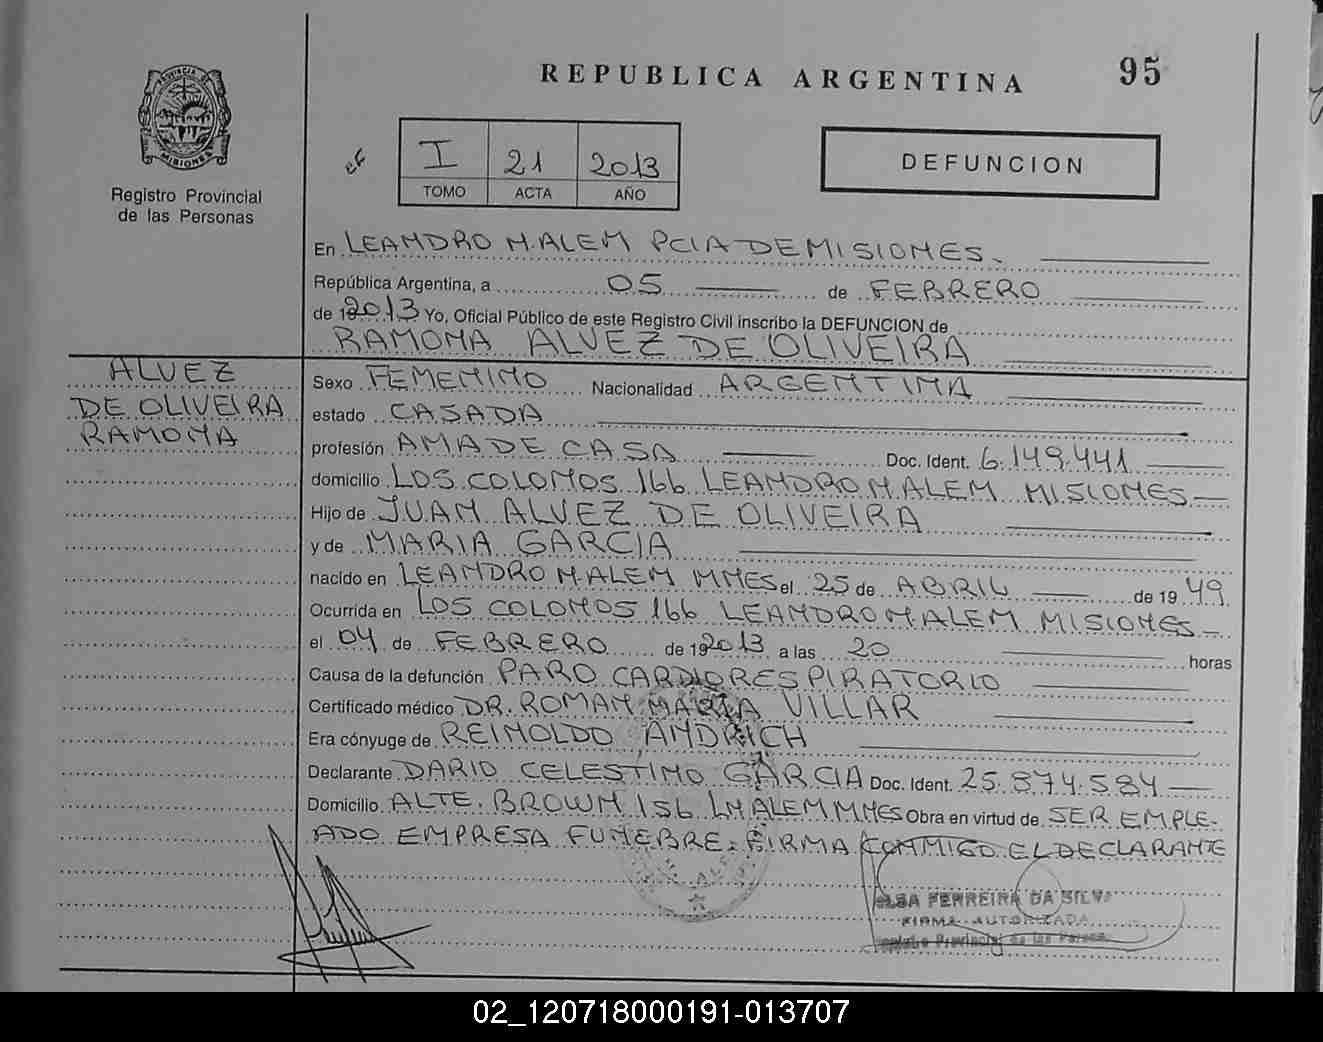 REPUBLICA ARGENTINA
95
PROVINCIA DE MISIONES
Registro Provincial
de las Personas
I 21 2013
TOMO ACTA AÑO
DEFUNCION
En LEANDRO N. ALEM PCIA DE MISIONES.
República Argentina, a 05 de FEBRERO
de 2013 Yo, Oficial Público de este Registro Civil inscribo la DEFUNCION de
RAMONA ALVEZ DE OLIVEIRA
ALVEZ
DE OLIVEIRA
RAMONA
Sexo FEMENINO Nacionalidad ARGENTINA
estado CASADA
profesión AMA DE CASA Doc. Ident. 6.149.441
domicilio LOS COLONOS 166 LEANDRO N. ALEM MISIONES
Hijo de JUAN ALVEZ DE OLIVEIRA
y de MARIA GARCIA
nacido en LEANDRO N. ALEM MNES el 25 de ABRIL de 1949
Ocurrida en LOS COLONOS 166 LEANDRO N ALEM MISIONES
el 04 de FEBRERO de 2013 a las 20 horas
Causa de la defunción PARO CARDIORESPIRATORIO
Certificado médico DR. ROMAN MARIA VILLAR
Era cónyuge de REINOLDO ANDRICH
Declarante DARIO CELESTINO GARCIA Doc. Ident. 25.874.584
Domicilio ALTE. BROWN 156 LN ALEM MNES Obra en virtud de SER EMPLE-
ADO EMPRESA FUNEBRE. FIRMA CONMIGO EL DECLARANTE
FERREIRA DA SILVA
FIRMA AUTORIZADA
Provincial de las Personas
02_120718000191-013707